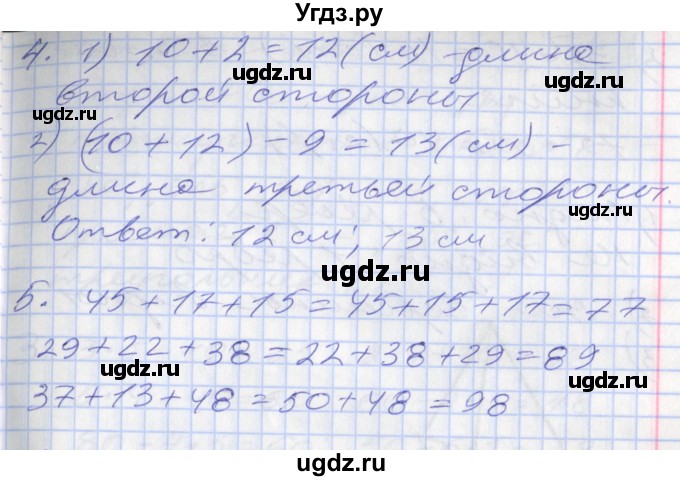 Угдз.ру
4. 1) 10+2=12(см) -длина
ugdz.ru
ugdz.ru
второй стороны
ugdz.ru
2) (10+12)-9=13(см) -
ugdz.ru
длина третьей стороны.
ugdz.ru
Ответ: 12 см; 13 см
ugdz.ru
5. 45+17+15=45+15+17=77
ugdz.ru
29+22+38=22+38+29=89
ugdz.ru
ugdz.ru
37+13+48=50+48=98
ugdz.ru
ugdz.ru